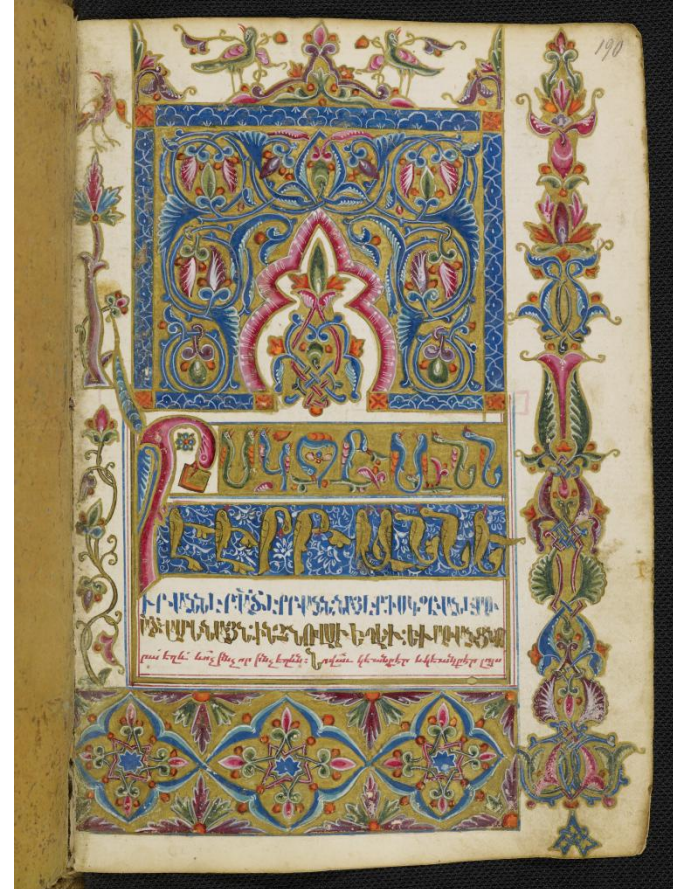 190
Ի ՍԿԶԲԱՆ
Է ԷՐ ԲԱՆՆ ԵՒ
ԲԱՆՆ ԷՐ ԱՌ ԱԾ ԷՐ ԲԱՆՆ ՆԱ ԷՐ Ի ՍԿԶԲԱՆԷ ԱՌ
ԱԾ ԱՄԵՆԱՅՆ ԻՆՉ ՆՈՎԱՒ ԵՂԵՒ: ԵՒ ԱՌԱՆՑ ՆՈ
րա եղև և ոչ ինչ որ ինչ եղևն: Նովաւ կեանք էր և կեանքն էր լոյս